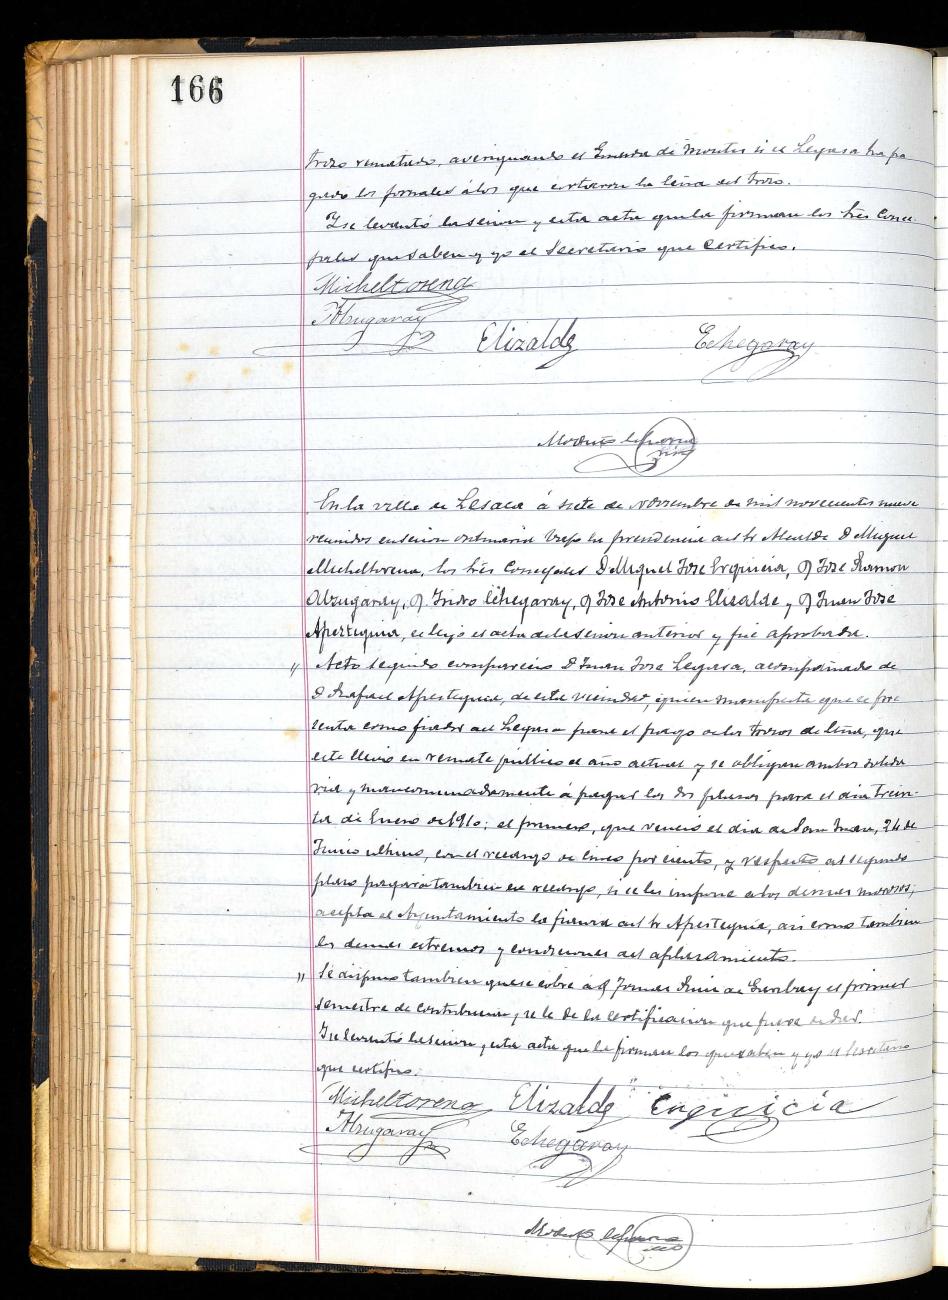 166
trozo rematado, averiguando el Guarda de Montes si el Legasa ha pa
gado los jornales á los que cortaron la leña del trozo.
Y se levantó la sesion y esta acta que la firman los tres Conce-
jales que saben y yo el Secretario que certifico.
Micheltorena
Abzugaray
Elizalde Echegaray
Modesto
En la villa de Lesaca á siete de Noviembre de mil novecientos nueve
reunidos en sesion ordinaria bajo la presidencia del Sr Alcalde D Miguel
Micheltorena, los tres Concejales D Miguel Jose Erquicia, D Jose Ramon
Abzugaray, D. Isidro Echegaray, D Jose Antonio Elizalde y D Juan Jose
Apesteguia, se leyó el acta de la sesion anterior y fue aprobada.
" Acto seguido compareció D Juan Jose Legasa, acompañado de
D Rafael Apesteguia, de esta vecindad, quien manifiesta que se pre
senta como fiador del Legasa para el pago de los trozos de leña, que
este llevó en remate público el año actual y se obligan ambos solida
ria y mancomunadamente á pagar los dos plazos para el dia trein-
ta de Enero de 1910; el primero, que venció el dia de San Juan, 24 de
Junio ultimo, con el recargo de cinco por ciento, y respecto del segundo
plazo pagará tambien en recargo, si se les impone a los demas morosos;
acepta el Ayuntamiento la fianza del Sr Apesteguia, asi como tambien
los demas estremos y condiciones del aplazamiento.
" Se dispuso tambien que se cobre á D Tomas Ruiz de Garibay el primer
semestre de contribucion y se le de la certificacion que fuera de dar.
Y se levantó la sesion y esta acta que la firman los que saben y yo el Secretario
que certifico.
Micheltorena Elizalde Erquicia
Abzugaray Echegaray
Modesto